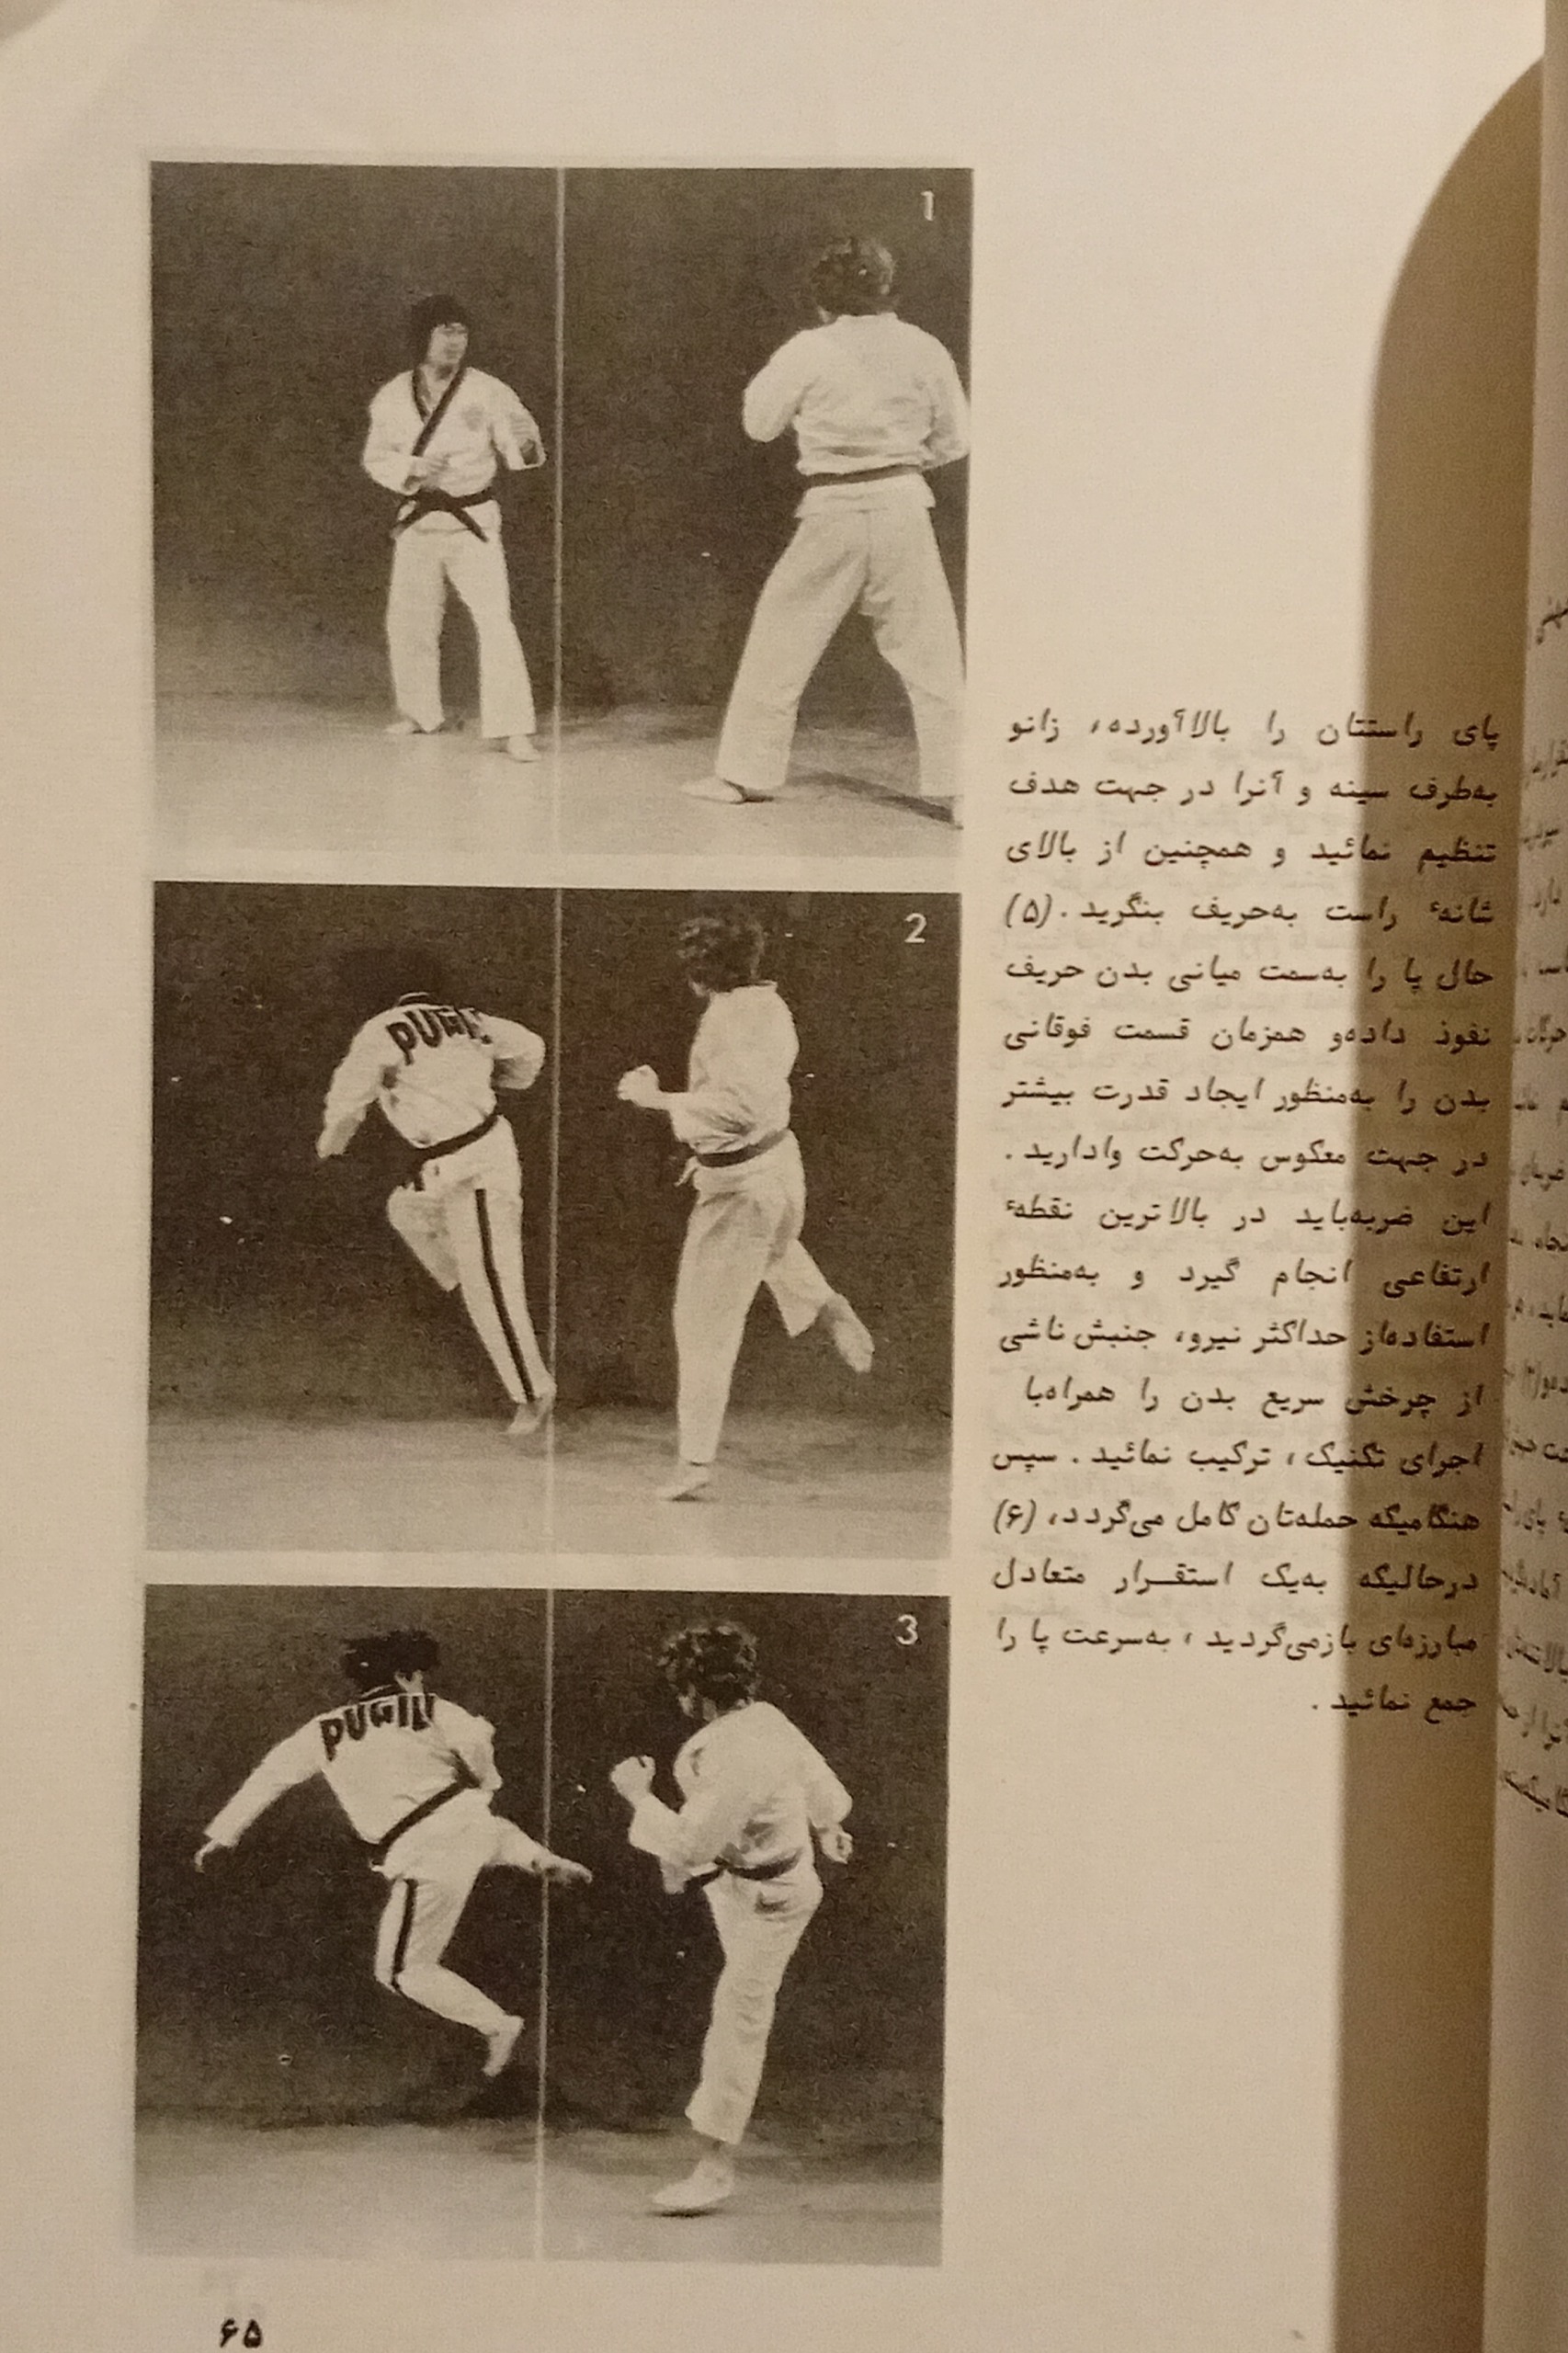 1
پای راستتان را بالاآورده، زانو
به‌طرف سینه و آنرا در جهت هدف
تنظیم نمائید و همچنین از بالای
شانهٔ راست به‌حریف بنگرید. (۵)
حال پا را به‌سمت میانی بدن حریف
نفوذ داده‌و همزمان قسمت فوقانی
بدن را به‌منظور ایجاد قدرت بیشتر
در جهت معکوس به‌حرکت وادارید.
این ضربه‌باید در بالاترین نقطهٔ
ارتفاعی انجام گیرد و به‌منظور
استفاده‌از حداکثر نیرو، جنبش ناشی
از چرخش سریع بدن را همراه‌با
اجرای تکنیک، ترکیب نمائید. سپس
هنگامیکه حمله‌تان کامل می‌گردد، (۶)
درحالیکه به‌یک استقـرار متعادل
مبارزه‌ای بازمی‌گردید، به‌سرعت پا را
جمع نمائید.
2
3
۶۵